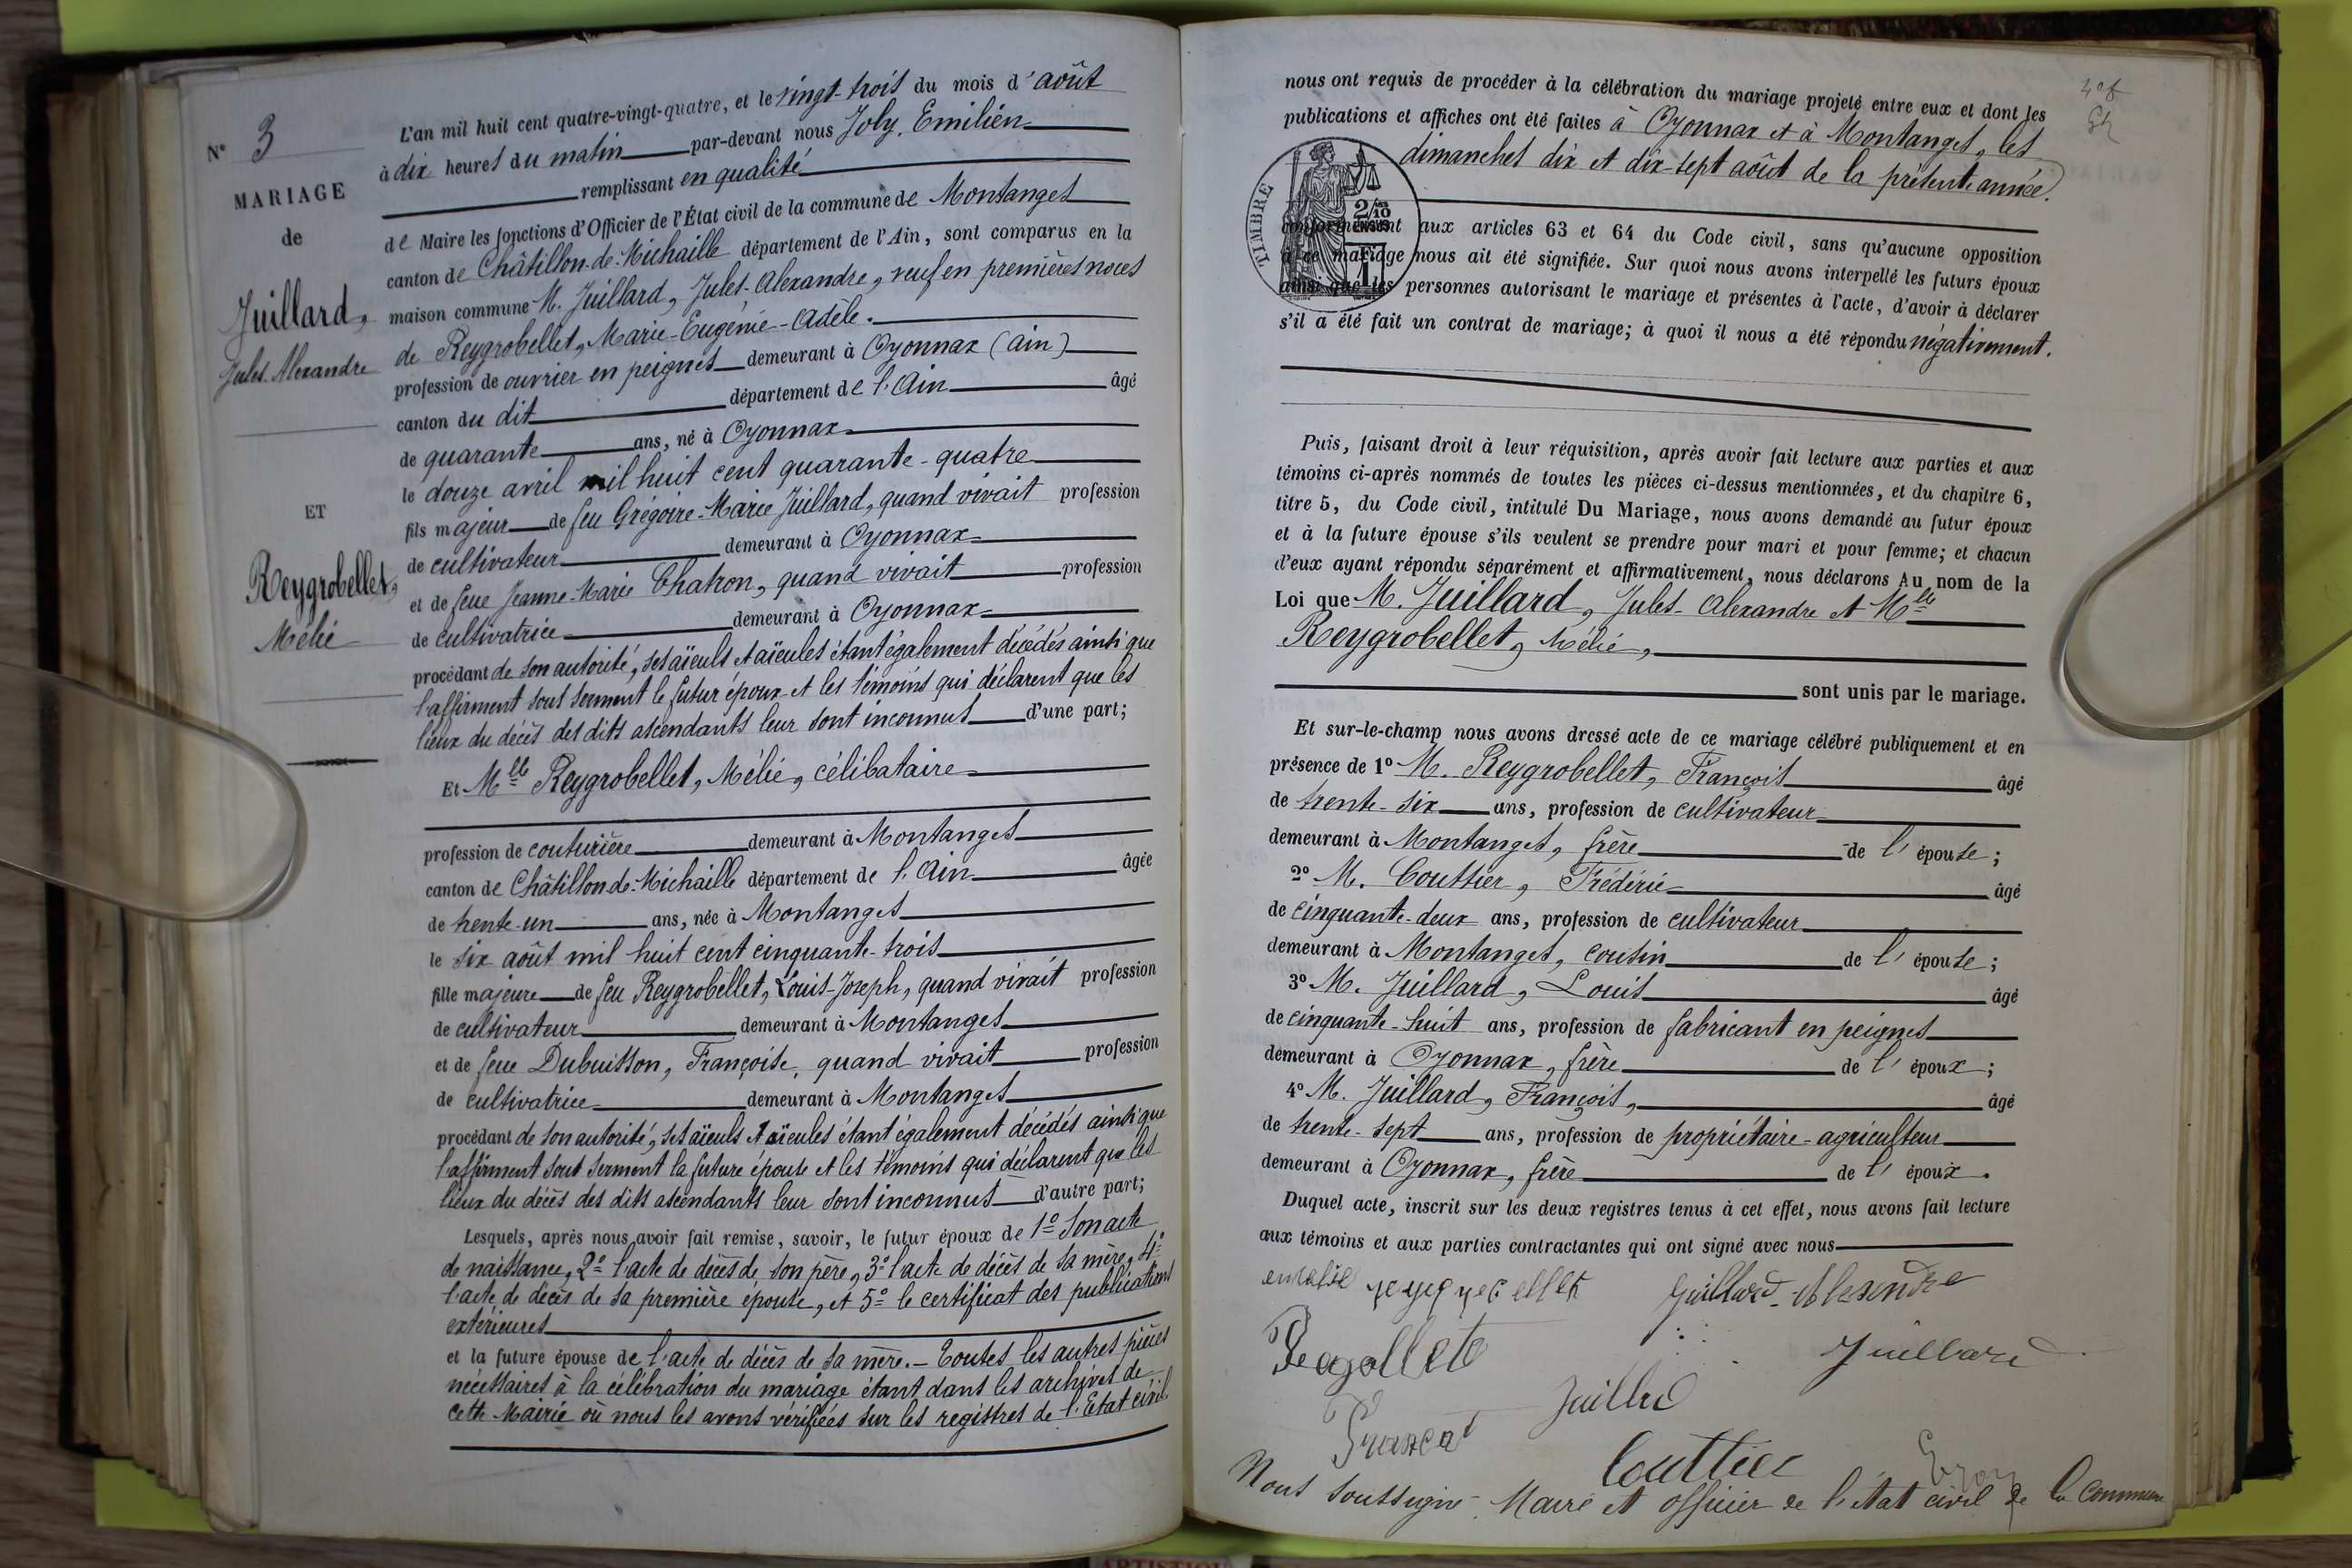 N° 3
MARIAGE
de
Juillard,
Jules-Alexandre
ET
Reygrobellet,
Mélie
L'an mil huit cent quatre-vingt-quatre, et le vingt-trois du mois d'août
à dix heures du matin par-devant nous Joly, Emilien
remplissant en qualité
de Maire les fonctions d'Officier de l'État civil de la commune de Montanges
canton de Châtillon-de-Michaille département de l'Ain, sont comparus en la
maison commune M. Juillard, Jules-Alexandre, veuf en premières noces
de Reygrobellet, Marie-Eugénie-Adèle.
profession de ouvrier en peignes demeurant à Oyonnax (Ain)
canton du dit département de l'Ain âgé
de quarante ans, né à Oyonnax
le douze avril mil huit cent quarante-quatre
fils majeur de feu Grégoire-Marie Juillard, quand vivait profession
de cultivateur demeurant à Oyonnax
et de feue Jeanne-Marie Chatron, quand vivait profession
de cultivatrice demeurant à Oyonnax
procédant de son autorité, ses aïeuls et aïeules étant également décédés ainsi que
l'affirment sous serment le futur époux et les témoins qui déclarent que les
lieux du décès des dits ascendants leur sont inconnus d'une part;
Et Mlle Reygrobellet, Mélie, célibataire
profession de couturière demeurant à Montanges
canton de Châtillon-de-Michaille département de l'Ain âgée
de trente-un ans, née à Montanges
le six août mil huit cent cinquante-trois
fille majeure de feu Reygrobellet, Louis-Joseph, quand vivait profession
de cultivateur demeurant à Montanges
et de feue Dubuisson, Françoise, quand vivait profession
de cultivatrice demeurant à Montanges
procédant de son autorité, ses aïeuls et aïeules étant également décédés ainsi que
l'affirment sous serment la future épouse et les témoins qui déclarent que les
lieux du décès des dits ascendants leur sont inconnus d'autre part;
Lesquels, après nous avoir fait remise, savoir, le futur époux de 1° Son acte
de naissance, 2° l'acte de décès de son père, 3° l'acte de décès de sa mère, 4°
l'acte de décès de sa première épouse, et 5° le certificat des publications
extérieures
et la future épouse de l'acte de décès de sa mère. - Toutes les autres pièces
nécessaires à la célébration du mariage étant dans les archives de
cette Mairie où nous les avons vérifiées sur les registres de l'Etat civil
nous ont requis de procéder à la célébration du mariage projeté entre eux et dont les
publications et affiches ont été faites à Oyonnax et à Montanges, les
dimanches dix et dix-sept août de la présente année.
TIMBRE
2/10
conformément aux articles 63 et 64 du Code civil, sans qu'aucune opposition
à ce mariage nous ait été signifiée. Sur quoi nous avons interpellé les futurs époux
ainsi que les personnes autorisant le mariage et présentes à l'acte, d'avoir à déclarer
s'il a été fait un contrat de mariage; à quoi il nous a été répondu négativement.
Puis, faisant droit à leur réquisition, après avoir fait lecture aux parties et aux
témoins ci-après nommés de toutes les pièces ci-dessus mentionnées, et du chapitre 6,
titre 5, du Code civil, intitulé Du Mariage, nous avons demandé au futur époux
et à la future épouse s'ils veulent se prendre pour mari et pour femme; et chacun
d'eux ayant répondu séparément et affirmativement, nous déclarons Au nom de la
Loi que M. Juillard, Jules-Alexandre et Mlle
Reygrobellet, Mélie,
sont unis par le mariage.
Et sur-le-champ nous avons dressé acte de ce mariage célébré publiquement et en
présence de 1° M. Reygrobellet, François âgé
de trente-six ans, profession de cultivateur
demeurant à Montanges, frère de l'épouse;
2° M. Couttier, Frédéric âgé
de cinquante-deux ans, profession de cultivateur
demeurant à Montanges, cousin de l'épouse;
3° M. Juillard, Louis âgé
de cinquante-huit ans, profession de fabricant en peignes
demeurant à Oyonnax, frère de l'époux;
4° M. Juillard, François, âgé
de trente-sept ans, profession de propriétaire-agriculteur
demeurant à Oyonnax, frère de l'époux.
Duquel acte, inscrit sur les deux registres tenus à cet effet, nous avons fait lecture
aux témoins et aux parties contractantes qui ont signé avec nous
Juillard-Alexandre
Juillard
Juillrd
Couttier
Nous soussigné Maire et officier de l'état civil de la commune